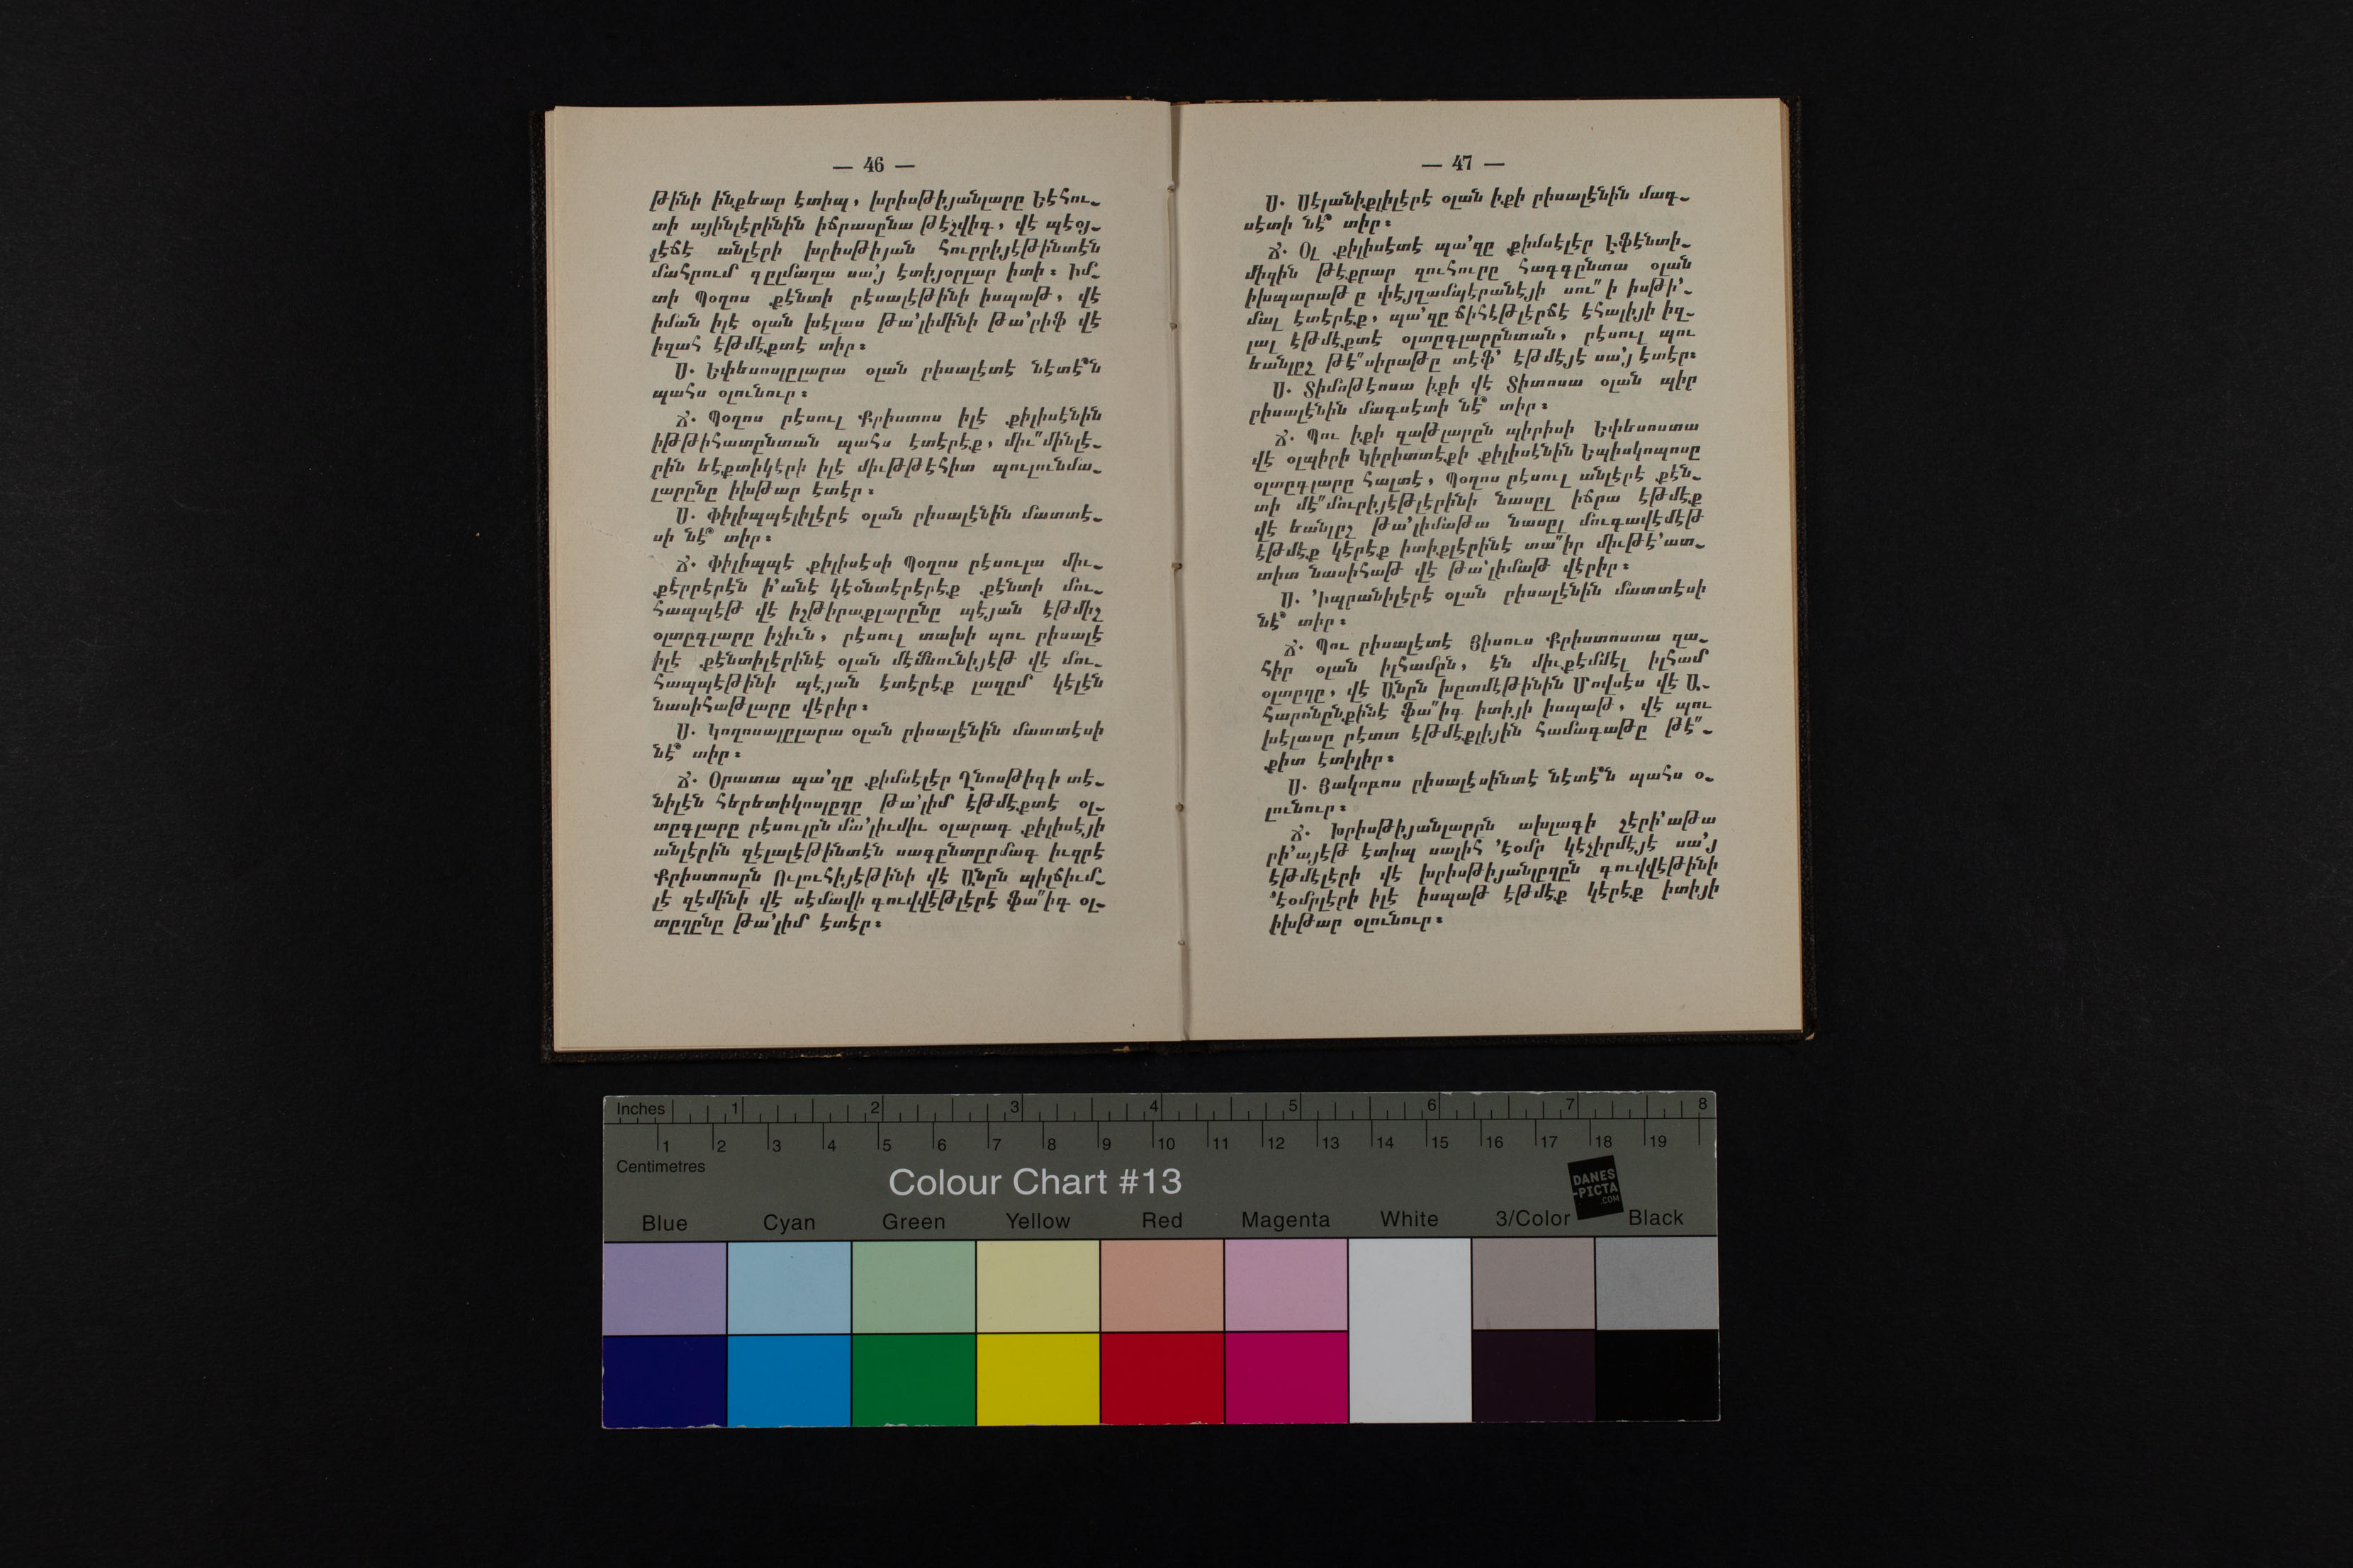 — 46 —
թինի ինքեար էտիպ, խրիսթիյանլարը Եէհու-
տի այինլէրինին իճրասընա թէշվիգ, վէ պէօյ-
լէճէ անլէրի խրիսթիյան հուրրիյէթինտէն
մահրում գըլմաղա սա՚յ էտիյօրլար իտի։ Իմ-
տի Պօղոս քէնտի րէսալէթինի իսպաթ, վէ
իման իլէ օլան խէլաս թա՚լիմինի թա՚րիֆ վէ
իզահ էթմէքտէ տիր։
Ս. Եփեսոսլըլարա օլան րիսալէտէ նէտէ՞ն
պահս օլունուր։
Ճ. Պօղոս րէսուլ Քրիստոս իլէ քիլիսէնին
իթթիհատընտան պահս էտէրէք, միւ՚՚մինլէ-
րին եէքտիկէրի իլէ միւթթէհիտ պուլունմա-
լարընը իխթար էտէր։
Ս. Փիլիպպէլիլէրէ օլան րիսալէնին մատտէ-
սի նէ՞ տիր։
Ճ. Փիլիպպէ քիլիսէսի Պօղոս րէսուլա միւ-
քէրրէրէն ի՚անէ կէօնտէրէրէք քէնտի մու-
հապպէթ վէ իշթիրաքլարընը պէյան էթմիշ
օլտըգլարը իչիւն, րէսուլ տախի պու րիսալէ
իլէ քէնտիլէրինէ օլան մէմնունիյէթ վէ մու-
հապպէթինի պէյան էտէրէք լազըմ կէլէն
նասիհաթլարը վէրիր։
Ս. Կողոսայըլարա օլան րիսալէնին մատտէսի
նէ՞ տիր։
Ճ. Օրատա պա՚զը քիմսէլէր Ղնոսթիգի տէ-
նիլէն հերետիկոսլըղը թա՚լիմ էթմէքտէ օլ-
տըգլարը րէսուլըն մա՚լիւմիւ օլարագ քիլիսէյի
անլէրին զէլալէթինտէն սագընտըրմագ իւզրէ
Քրիստոսըն Ուլուհիյէթինի վէ Անըն պիլճիւմ-
լէ զէմինի վէ սէմավի գուվվէթլէրէ ֆա՚՚իգ օլ-
տըղընը թա՚լիմ էտէր։
— 47 —
Ս. Սէլանիքլիլէրէ օլան իքի րիսալէնին մագ-
սէտի նէ՞ տիր։
Ճ. Օլ քիլիսէտէ պա՚զը քիմսէլէր Էֆէնտի-
միզին թէքրար զուհուրը հագգընտա օլան
իխպարաթ ը փէյղամպէրանէյի սու՚՚ ի իսթի՚-
մալ էտէրէք, պա՚զը ճիհէթլէրճէ էհալիյի իզ-
լալ էթմէքտէ օլտըգլարընտան, րէսուլ պու
եանլըշ թէ՚՚սիրաթը տէֆ՚ էթմէյէ սա՚յ էտէր։
Ս. Տիմօթէոսա իքի վէ Տիտոսա օլան պիր
րիսալէնին մագսէտի նէ՞ տիր։
Ճ. Պու իքի զաթլարըն պիրիսի Եփեսոստա
վէ օլպիրի Կիրիտտէքի քիլիսէնին Եպիսկոպոսը
օլտըգլարը հալտէ, Պօղոս րէսուլ անլէրէ քէն-
տի մէ՚՚մուրիյէթլէրինի նասըլ իճրա էթմէք
վէ եանլըշ թա՚լիմաթա նասըլ մուգավէմէթ
էթմէք կէրէք իտիքլէրինէ տա՚՚իր միւթէ՚ատ-
տիտ նասիհաթ վէ թա՚լիմաթ վէրիր։
Ս. ՚Իպրանիլէրէ օլան րիսալէնին մատտէսի
նէ՞ տիր։
Ճ. Պու րիսալէտէ Յիսուս Քրիստոստա զա-
հիր օլան իլհամըն, էն միւքէմմէլ իլհամ
օլտըղը, վէ Անըն խըտմէթինին Մովսէս վէ Ա-
հարոնընքինէ ֆա՚՚իգ իտիյի իսպաթ, վէ պու
խէլասը րէտտ էթմէքլիյին համագաթը թէ՚՚-
քիտ էտիլիր։
Ս. Յակոբոս րիսալէսինտէ նէտէ՞ն պահս օ-
լունուր։
Ճ. Խրիսթիյանլարըն ախլագի շէրի՚աթա
րի՚այէթ էտիպ սալիհ ՚էօմր կէչիրմէյէ սա՚յ
էթմէլէրի վէ խրիսթիյանլըղըն գուվվէթինի
՚էօմրլէրի իլէ իսպաթ էթմէք կէրէք իտիյի
իխթար օլունուր։
Inches 1 2 3 4 5 6 7 8
1 2 3 4 5 6 7 8 9 10 11 12 13 14 15 16 17 18 19
Centimetres
Colour Chart #13
DANES
-PICTA
.COM
Blue Cyan Green Yellow Red Magenta White 3/Color Black